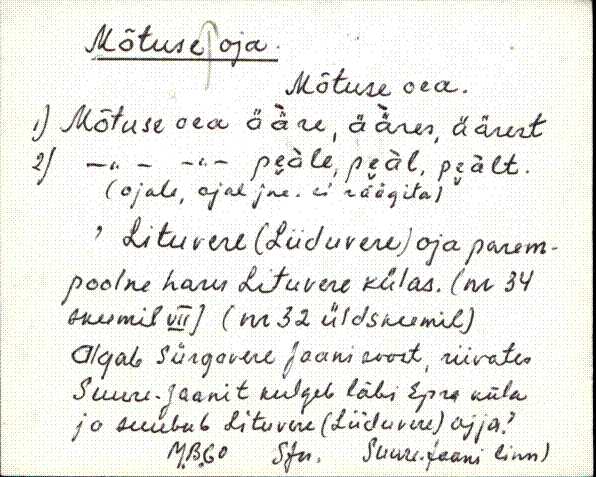 Mõtuse oja.
Mõtuse oea.
1) Mõtuse oea ääre, ääres, äärest
2) —„— —„— peäle, peäl, peält.
(ojale, ojal jne. ei räägita)
, Lituvere (Liiduvere) oja parem-
poolne haru Lituvere külas. (nr 34
skeemil VII] (nr 32 üldskeemil)
Algab Sürgavere Jaani soost, riivates
Suure-Jaanit kulgeb läbi Epra küla
ja suubub Lituvere (Liiduvere) ojja.
M.B.60 SJn. Suure-Jaani linn)